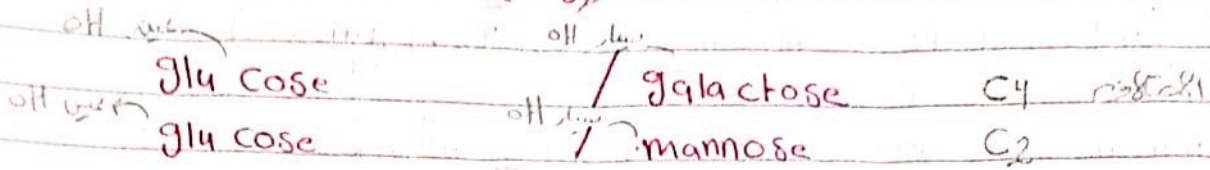 OH يمين   OH يسار
glucose / galactose C4
OH يمين   OH يسار
glucose / mannose C2